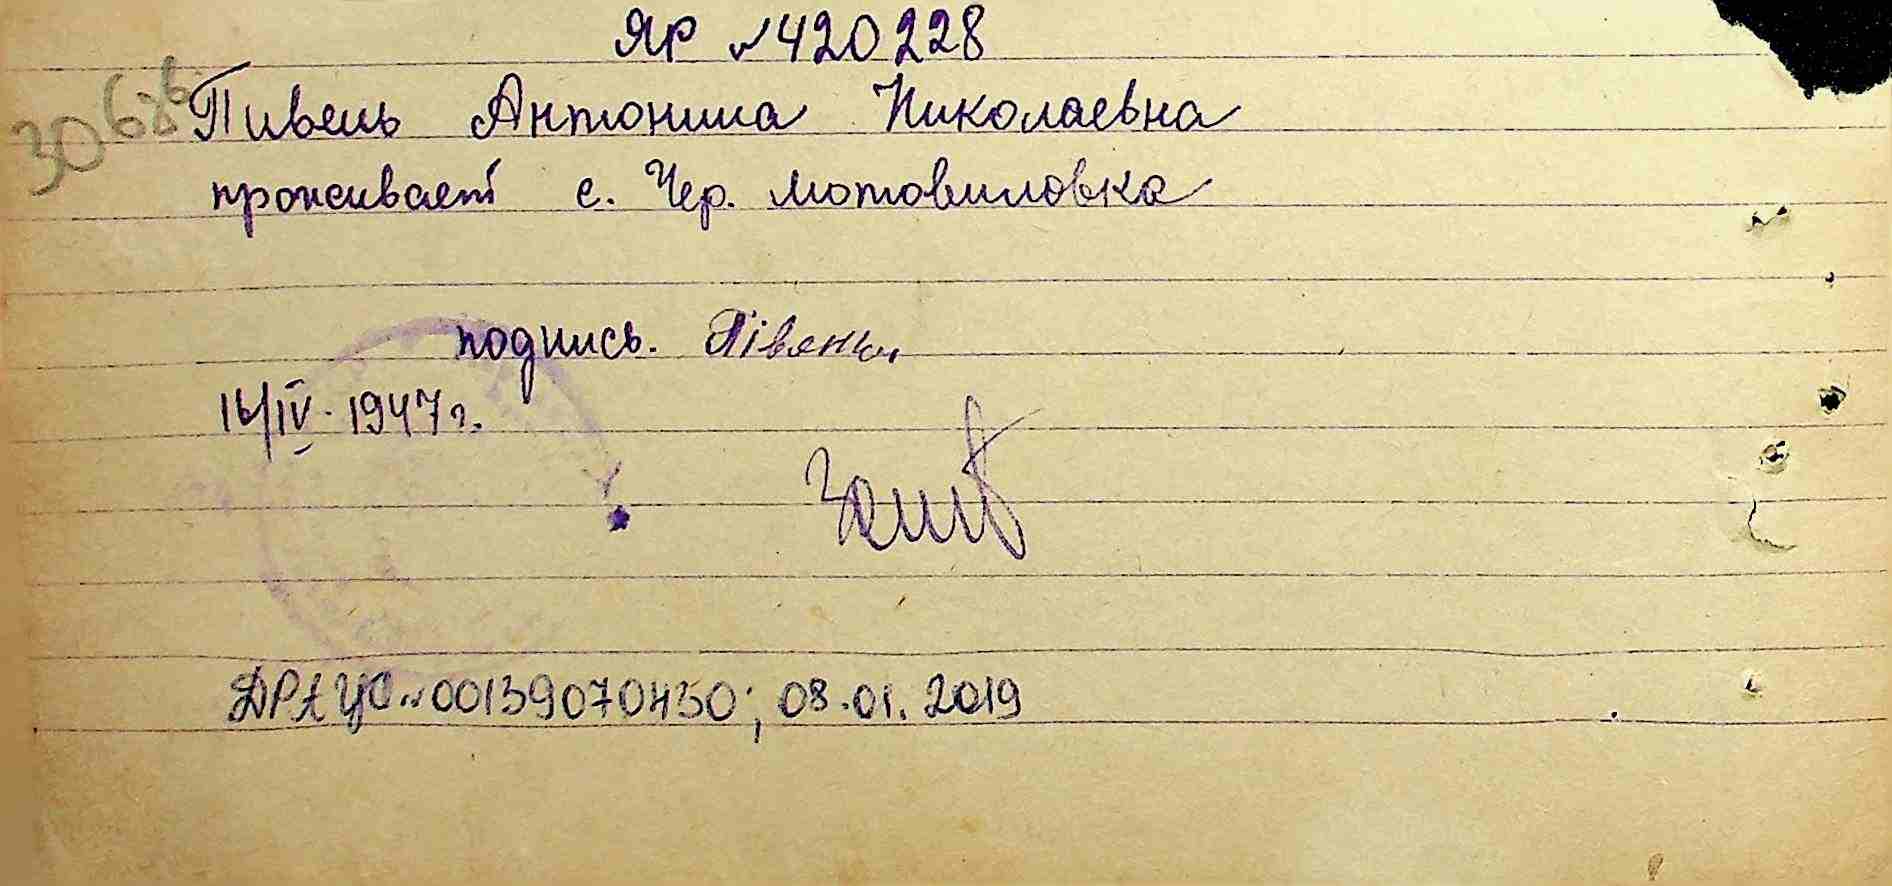 ЯР №420228
Пивень Антонина Николаевна
проживает с. Чер. Мотовиловка
подпись. Півень
16/IV. 1947 г.
ДРАЦС №00139070450; 08.01.2019